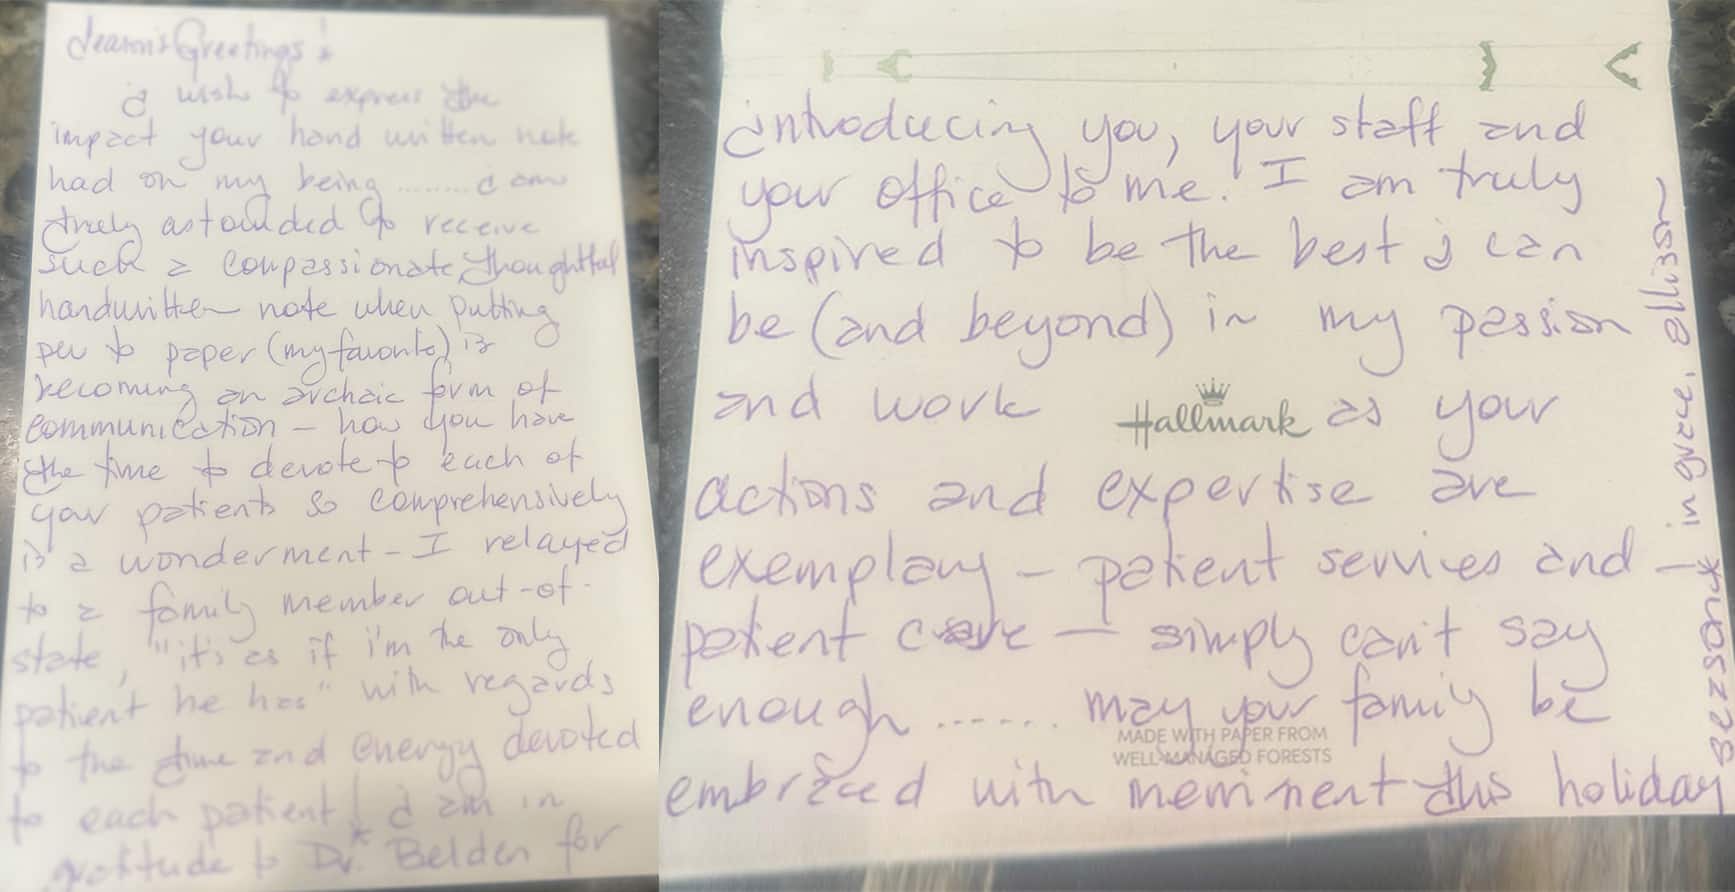 Season's Greetings!
I wish to express the
impact your hand written note
had on my being ........ I am
truly astounded to receive
such a compassionate thoughtful
handwritten note when putting
pen to paper (my favorite) is
becoming an archaic form of
communication - how you have
the time to devote to each of
your patients so comprehensively
is a wonderment - I relayed
to a family member out-of-
state, "it's as if i'm the only
patient he has" with regards
to the time and energy devoted
to each patient! I am in
gratitude to Dr. Belden for
introducing you, your staff and
your office to me. I am truly
inspired to be the best I can
be (and beyond) in my passion
and work as your
Hallmark
actions and expertise are
exemplary - patient services and
patient care - simply can't say
enough ...... may your family be
MADE WITH PAPER FROM
WELL-MANAGED FORESTS
embraced with merriment this holiday
- in grace, ellison
Bezsonuk